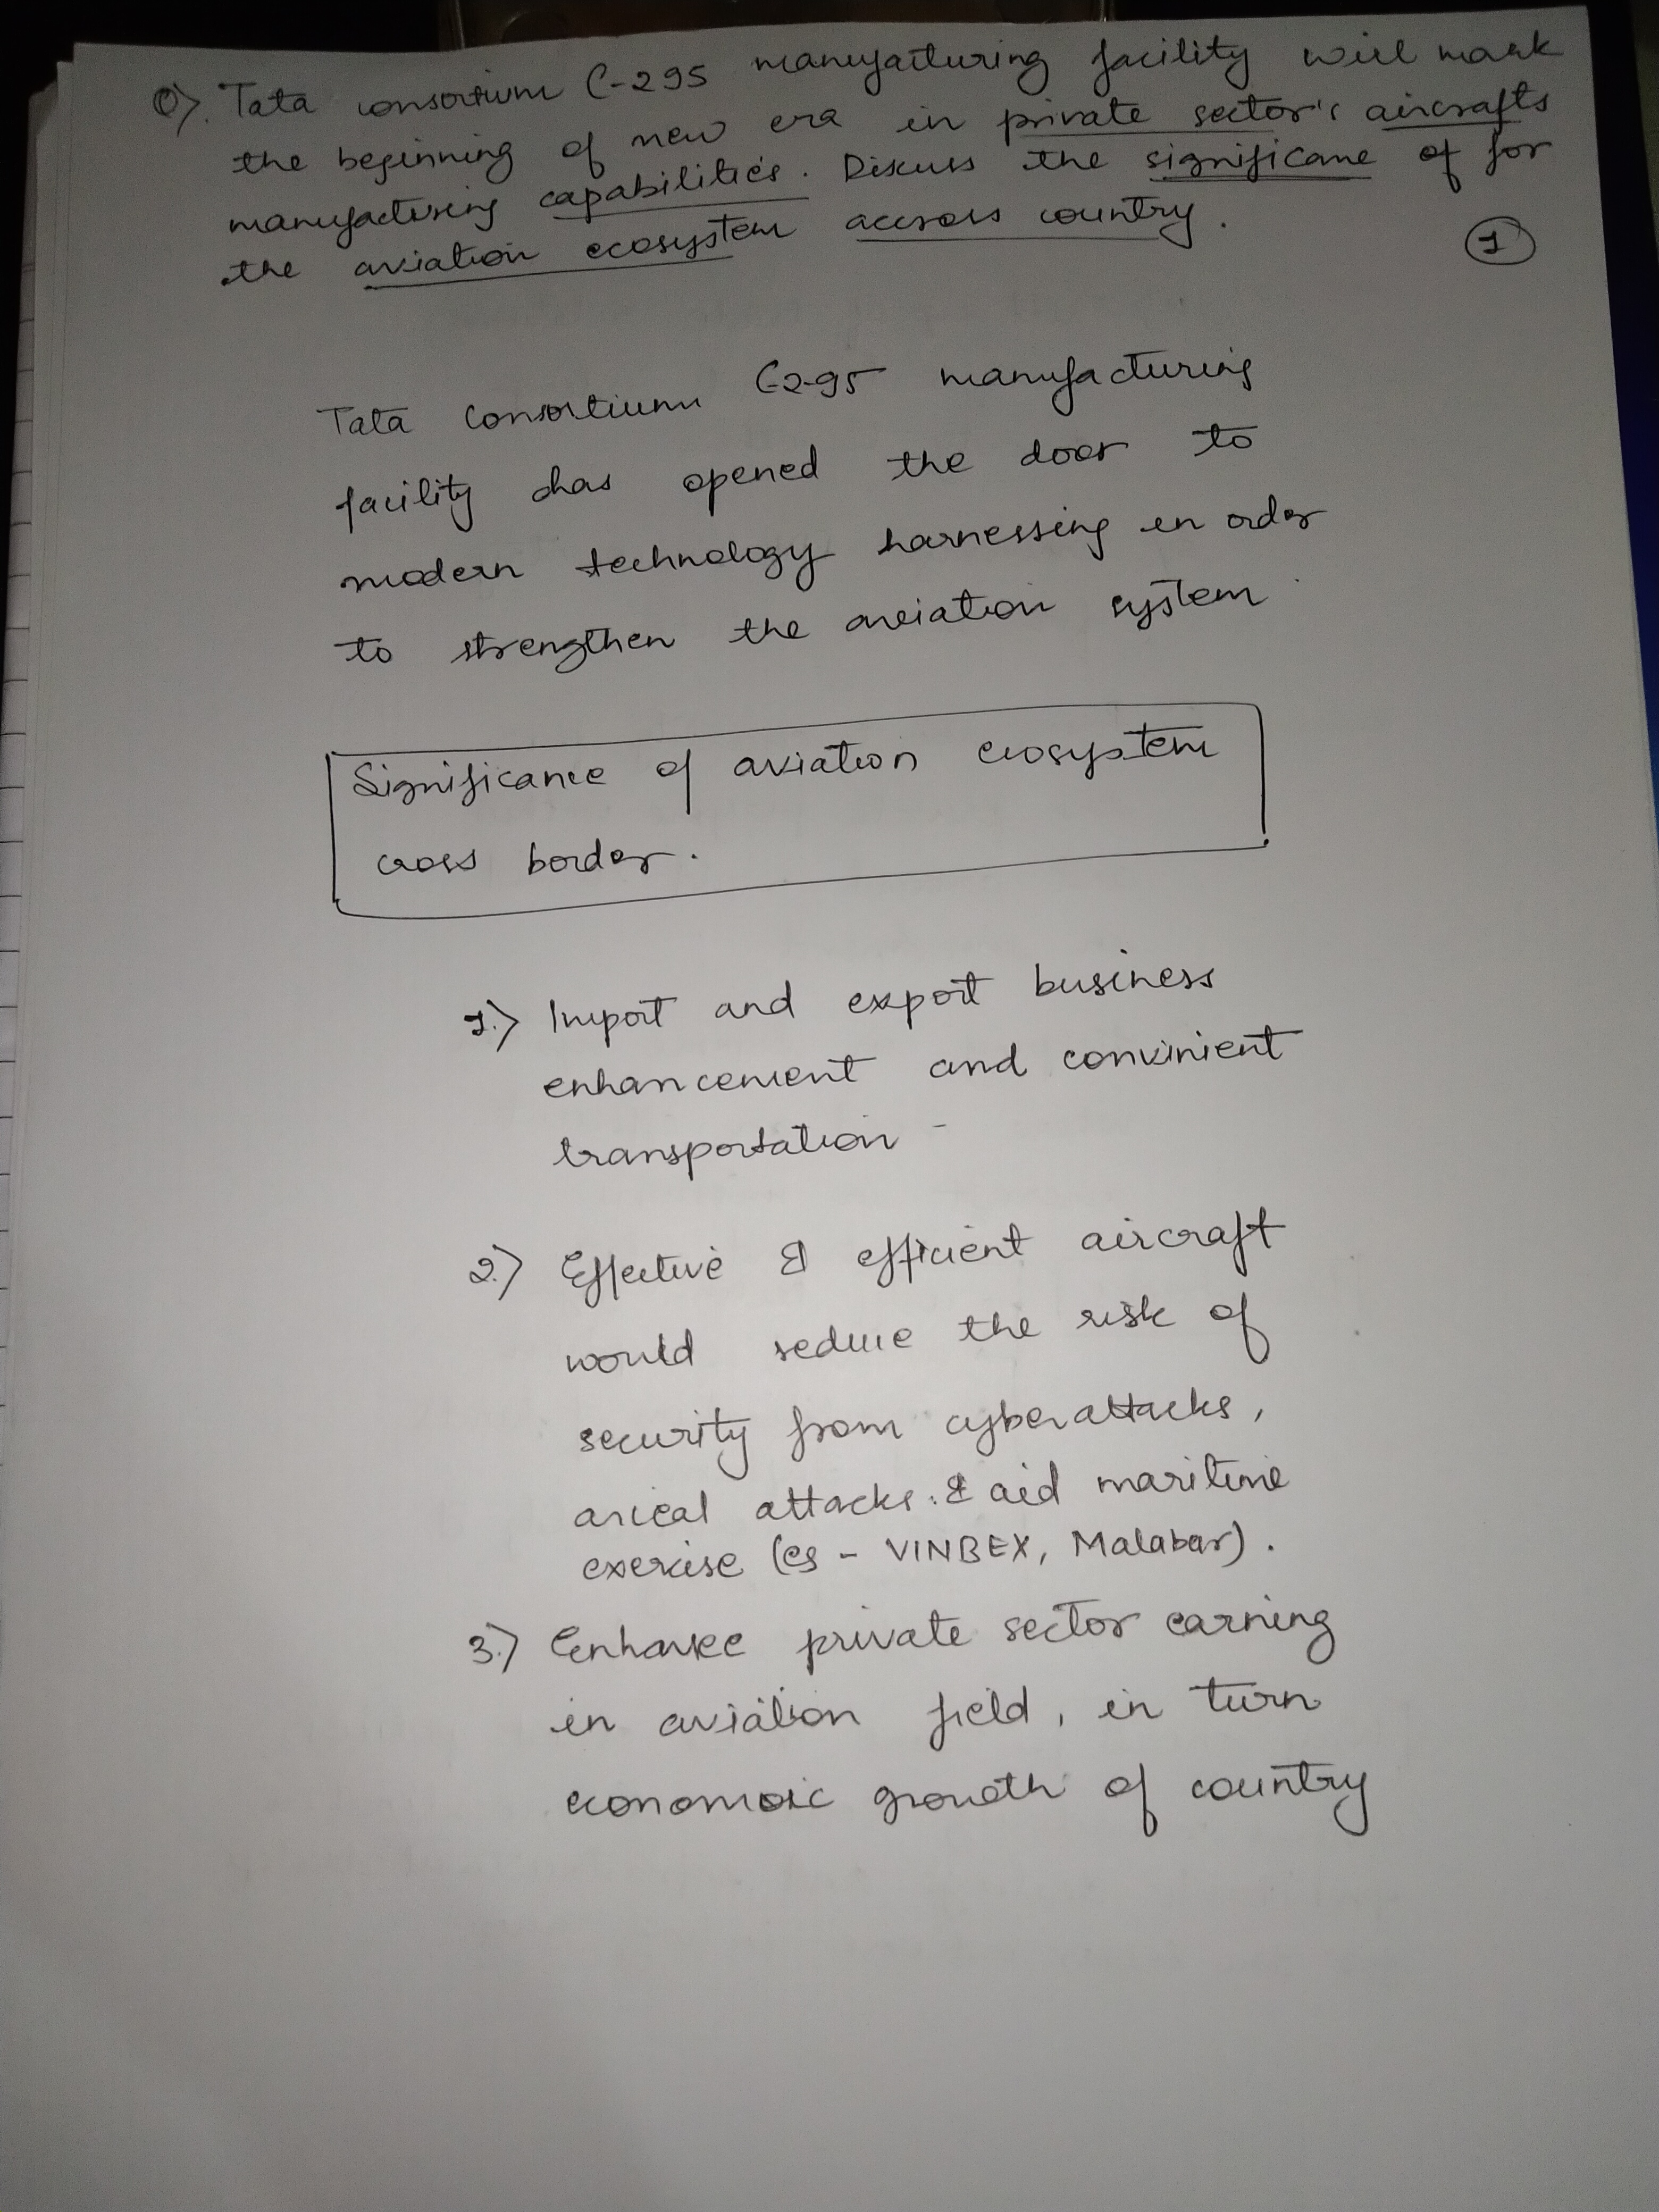 Q). Tata consortium C-295 manufacturing facility will mark
the beginning of new era in private sector's aircrafts
manufacturing capabilities. Discuss the significane of for
the aviation ecosystem accross country.
1
Tata Consortium C-295 manufacturing
facility has opened the door to
modern technology harnessing in order
to strengthen the aviation system.
Significance of aviation ecosystem
cross border.
1.) Import and export business
enhancement and convinient
transportation -
2.) Effective & efficient aircraft
would reduce the risk of
security from cyberattacks,
arieal attacks. & aid maritime
exercise (eg - VINBEX, Malabar).
3.) Enhance private sector earning
in aviation field, in turn
economic growth of country